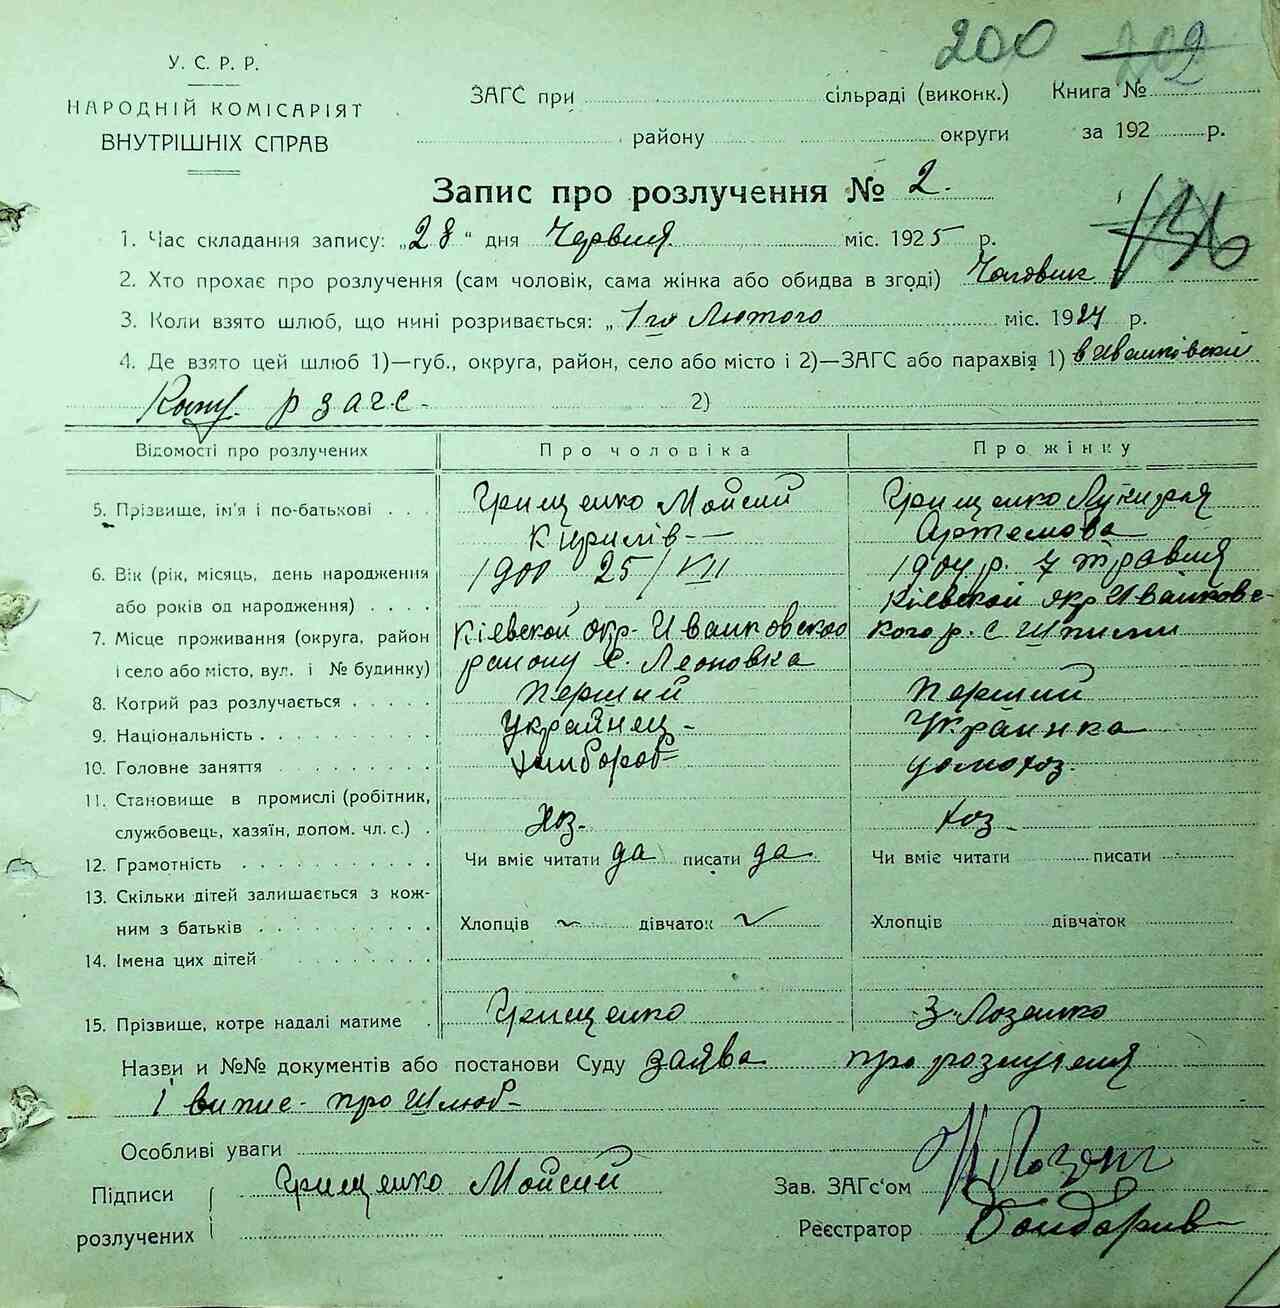 200 202
У. С. Р. Р.
НАРОДНІЙ КОМІСАРІЯТ
ВНУТРІШНІХ СПРАВ
ЗАГС при сільраді (виконк.) Книга №
району округи за 192 р.
Запис про розлучення № 2.
1. Час складання запису: „28“ дня Червня міс. 1925 р.
2. Хто прохає про розлучення (сам чоловік, сама жінка або обидва в згоді) Чоловик
3. Коли взято шлюб, що нині розривається: „1го Лютого міс. 1924 р.
4. Де взято цей шлюб 1)—губ., округа, район, село або місто і 2)—ЗАГС або парахвія 1) в Ивашківськ
р загс. 2)
Відомості про розлучених Про чоловіка Про жінку
5. Прізвище, ім'я і по-батькові . . . Грищенко Мойсий Грищенко Лукирія
Кирилів- Артемова
6. Вік (рік, місяць, день народження 1900 25/VII 1904 р. 7 травня
або років од народження) . . . . Кіевской окр Иванковс-
7. Місце проживання (округа, район Кіевской окр- Иванковского кого р. с Шпили
і село або місто, вул. і № будинку) району с. Леоновка
8. Котрий раз розлучається . . . . . Перший Перший
9. Національність . . . . . . . . . Українец- Українка
10. Головне заняття . . . . . . . . Хлибороб домохоз.
11. Становище в промислі (робітник,
службовець, хазяїн, допом. чл. с.) . Хоз. Хоз
12. Грамотність . . . . . . . . . . Чи вміє читати да писати да Чи вміє читати писати
13. Скільки дітей залишається з кож-
ним з батьків . . . . . . . . . Хлопців дівчаток Хлопців дівчаток
14. Імена цих дітей . . . . . . . .
15. Прізвище, котре надалі матиме . Грищенко Лозенко
Назви и №№ документів або постанови Суду заява про розлучення
і випис- про Шлюб-
Особливі уваги
Підписи Грищенко Мойсий Зав. ЗАГс'ом
розлучених Реєстратор Бондарив